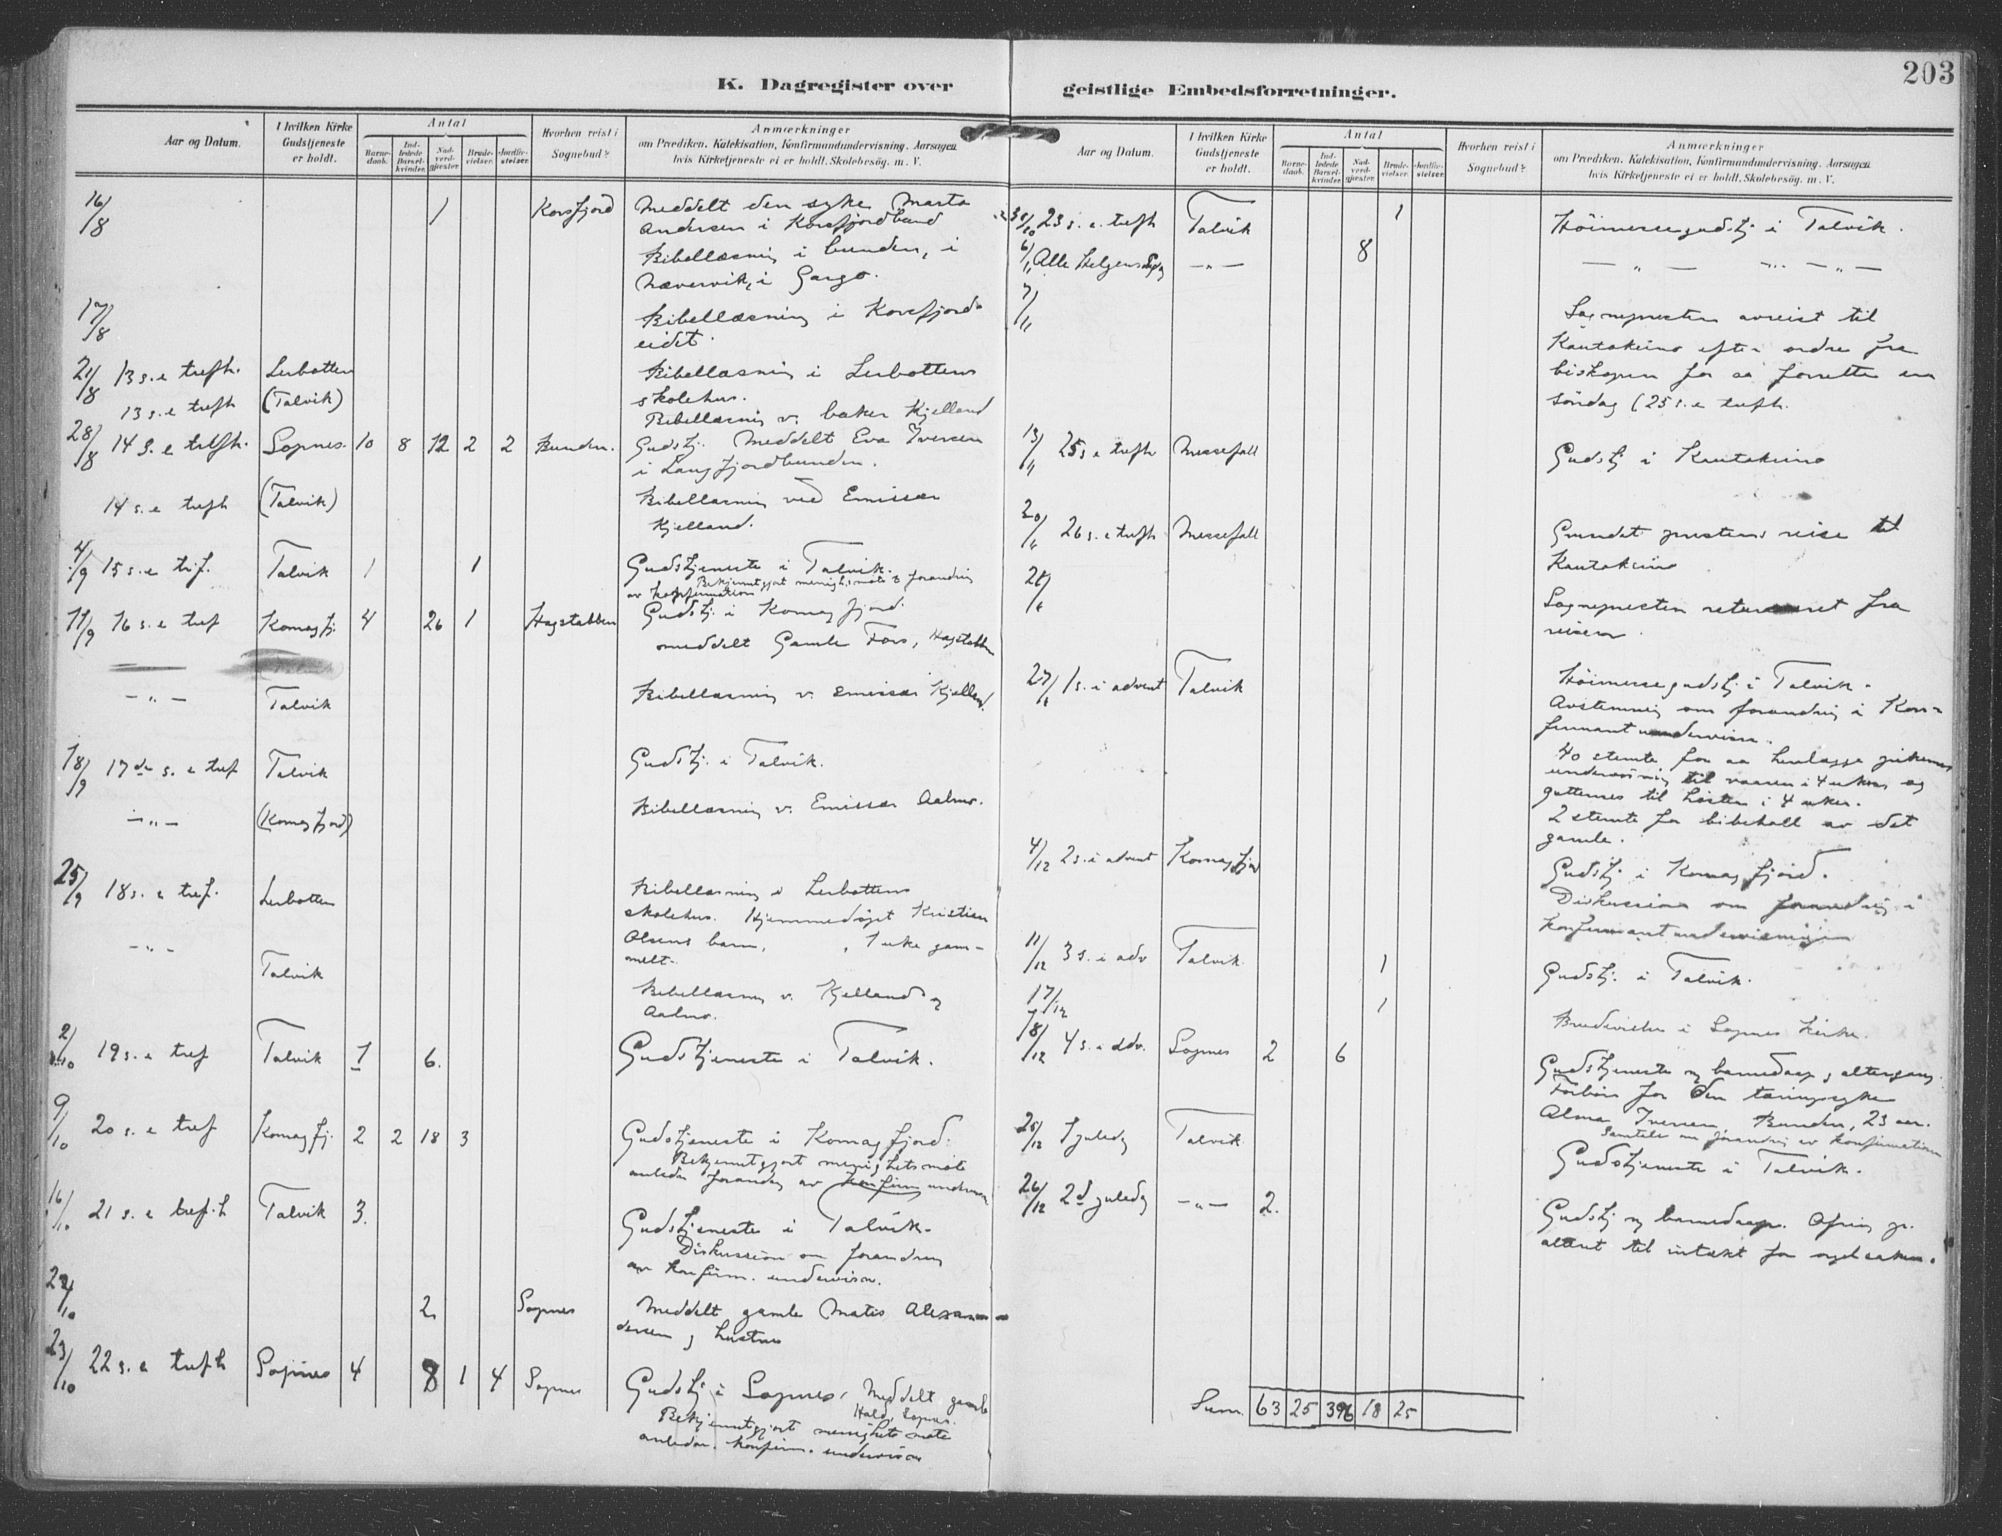 203
K. Dagregister over
geistlige Embedsforretninger.
Aar og Datum.
I hvilken Kirke Gudstjeneste er holdt.
Antal
Barnedaab.
Indledede Barselkvinder.
Nadverdgjester.
Brudevielser.
Jordfæstelser.
Hvorhen reist i Sognebud?
Anmærkninger
om Prædiken. Katekisation, Konfirmandundervisning. Aarsagen
hvis Kirketjeneste ei er holdt. Skolebesøg. m. V.
16/8 1 Korsfjord Meddelt den syke Marta
Andersen i Korsfjordbund
Bibellæsning i bunden, i
Nævervik, i Gargo.
17/8 Bibellæsning i Korsfjord
eidet.
21/8 13 s. e trefh. Lerbotten Bibellæsning i Lerbottens
skolehus.
13 s. e trefh (Talvik) Bibellæsning v. Kjelland
28/8 14 S. e trefh. Sopnes. 10 8 12 2 2 Bunden. Gudstj. Meddelt Eva Iversen
i Langfjordbunden.
14 s. e trefh (Talvik) Bibellæsning ved Emissær
Kjelland.
4/9 15 s. e trf. Talvik 1 1 Gudstjeneste i Talvik.
Bekjentgjort menighetsmøte forandring
av konfirmation
11/9 16 s. e tref Komagfj. 4 26 1 Hagstabben Gudstj. i Komagfjord.
meddelt Gamle Fors, Hagstabben
— „ — Talvik Bibellæsning v. emissær Kjelland.
18/9 17de s. e tref Talvik Gudstj. i Talvik.
— „ — (Komagfjord) Bibellæsning v. Emissær Aalmo.
25/9 18 s. e tref. Lerbotten Bibellæsning i Lerbottens
skolehus. Hjemmedøpt Kristian
Olsens barn, 1 uke gam-
melt.
— „ — Talvik Bibellæsning v. Kjelland og
Aalmo.
2/10 19 s. e tref Talvik 1 6. Gudstjeneste i Talvik.
9/10 20 s. e tref Komagfj. 2 2 18 3 Gudstjeneste i Komagfjord.
Bekjentgjort menighetsmøte
anledn. forandrg av konfirm undervisn
16/10 21 s. e tref.h Talvik 3. Gudstjeneste i Talvik.
Diskussion om forandring
av konfirm. undervisn.
22/10 2 Sopnes Meddelt gamle Matis Alexan-
dersen og hustru
23/10 22 s. e trefh Sopnes 4 8 1 4 Sopnes Gudstj i Sopnes, Meddelt gamle
Hald, Sopnes.
Bekjentgjort menighets møte
anledn. konfirm. undervisn
Aar og Datum.
I hvilken Kirke Gudstjeneste er holdt.
Antal
Barnedaab.
Indledede Barselkvinder.
Nadverdgjester.
Brudevielser.
Jordfæstelser.
Hvorhen reist i Sognebud?
Anmærkninger
om Prædiken. Katekisation, Konfirmandundervisning. Aarsagen
hvis Kirketjeneste ei er holdt. Skolebesøg. m. V.
30/10 23 s. e. trefh Talvik 1 Höimessegudstj i Talvik.
6/11 Alle Helgensdag — „ — 8 — „ — „ — „ —
7/11 Sognepresten avreist til
Kautokeino efter ordre fra
biskopen for aa forrette en
søndag (25 s. e trefh.
13/11 25 s e trefh Messefall Gudstj i Kautokeino
20/11 26 s. e trefh Messefall Grundet prestens reise til
Kautokeino
Sognepresten returneret fra
reisen.
27/11 1 s. i advent Talvik Höimessegudstj i Talvik.
Avstemning om forandring i Kon-
firmantundervisn.
40 stemte for aa henlægge pikenes
undervisning til vaaren i 4 uker og
guttenes til høsten i 4 uker.
2 stemte for bibehold av det
gamle.
4/12 2 s. i advent Komagfjord Gudstj i Komagfjord.
Diskussion om forandring i
konfirmantundervisningen
11/12 3 s. i adv Talvik. 1 Gudstj. i Talvik.
17/12 1 Brudevielse i Sopnes kirke.
18/12 4 s. i adv. Sopnes 2 6 Gudstjeneste og barnedaap, altergang.
Forbön for den tæringsyke
Alma Iversen, Bunden, 23 aar.
Samtale om forandring av konfirmationen
25/12 1 juledg Talvik Gudstjeneste i Talvik.
26/12 2d juledg — „ — 2. Gudstj og barnedaap. Ofring pr.
alteret til intækt for
Sum. 63 25 396 18 25